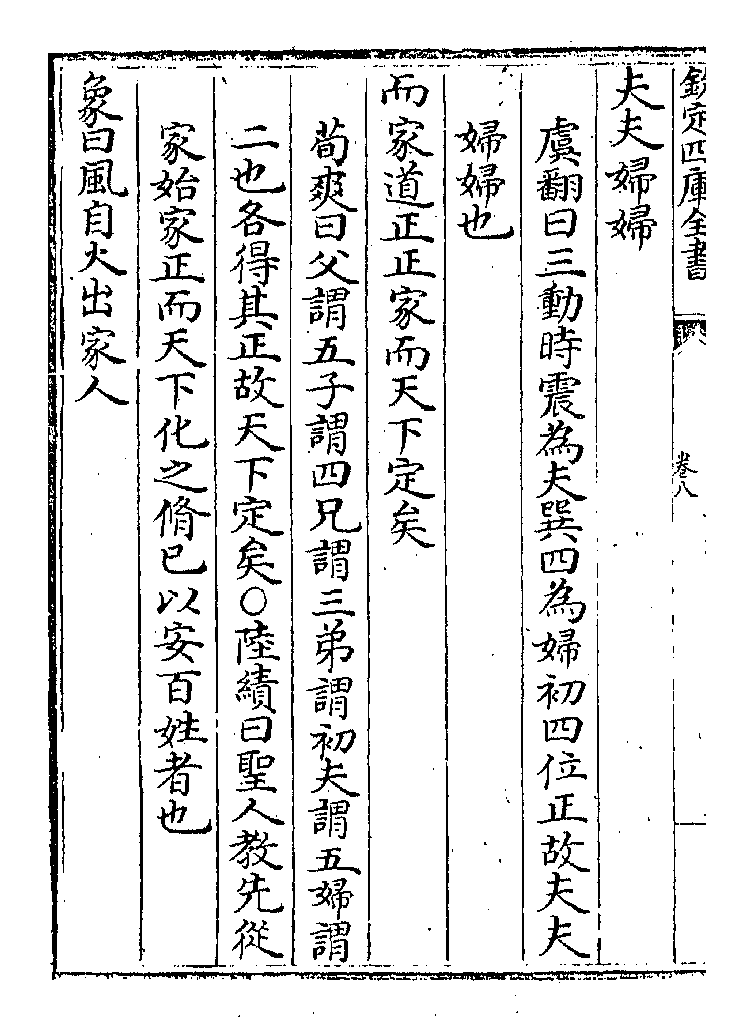 欽定四庫全書
卷八
夫夫婦婦
虞翻曰三動時震為夫巽四為婦初四位正故夫夫
婦婦也
而家道正正家而天下定矣
荀爽曰父謂五子謂四兄謂三弟謂初夫謂五婦謂
二也各得其正故天下定矣○陸績曰聖人教先從
家始家正而天下化之脩已以安百姓者也
象曰風自火出家人